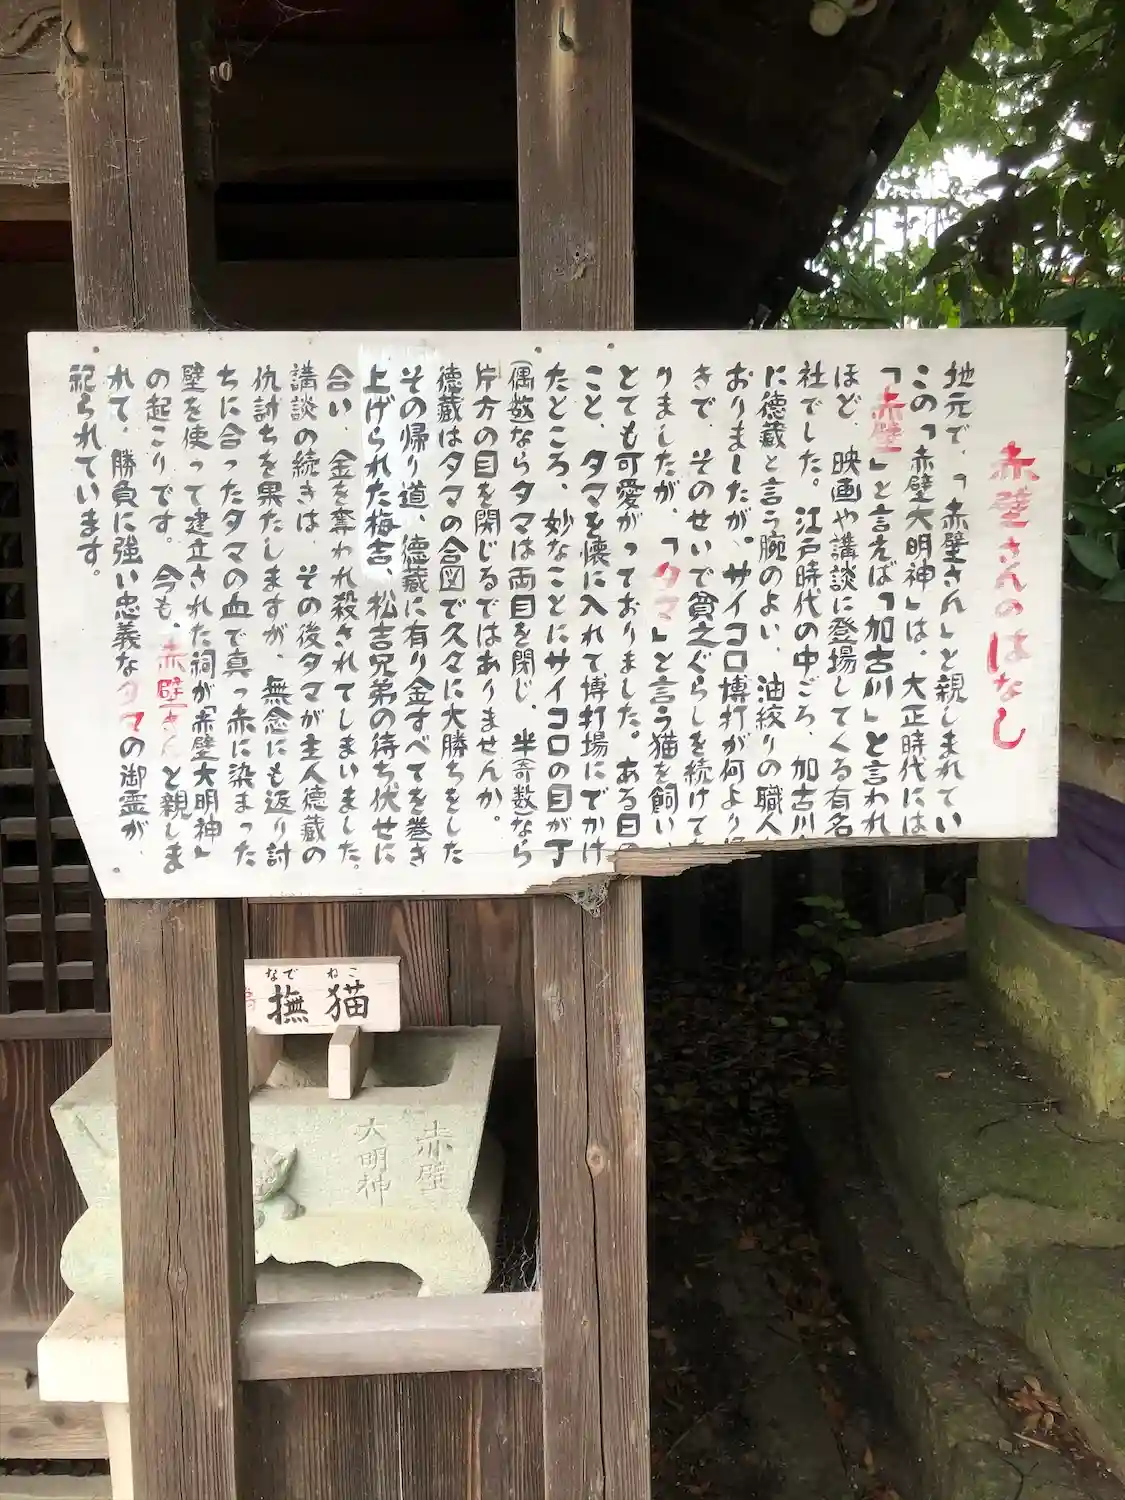 赤壁さんのはなし
地元で、「赤壁さん」と親しまれてい
この「赤壁大明神」は、大正時代には
「赤壁」と言えば「加古川」と言われ
ほど、映画や講談に登場してくる有名
社でした。江戸時代の中ごろ、加古川
に徳蔵と言う腕のよい、油絞りの職人
おりましたが、サイコロ博打が何より
きで、そのせいで貧乏ぐらしを続けて
りましたが、「タマ」と言う猫を飼い、
とても可愛がっておりました。ある日の
こと、タマを懐に入れて博打場にでかけ
たところ、妙なことにサイコロの目が丁
(偶数)ならタマは両目を閉じ、半(奇数)なら
片方の目を閉じるではありませんか。
徳蔵はタマの合図で久々に大勝ちをした
その帰り道、徳蔵に有り金すべてを巻き
上げられた梅吉、松吉兄弟の待ち伏せに
合い、金を奪われ殺されてしまいました。
講談の続きは、その後タマが主人徳蔵の
仇討ちを果たしますが、無念にも返り討
ちに合ったタマの血で真っ赤に染まった
壁を使って建立された祠が「赤壁大明神」
の起こりです。今も、赤壁さんと親しま
れて、勝負に強い忠義なタマの御霊が、
祀られています。
なで ねこ
撫猫
赤壁
大明神